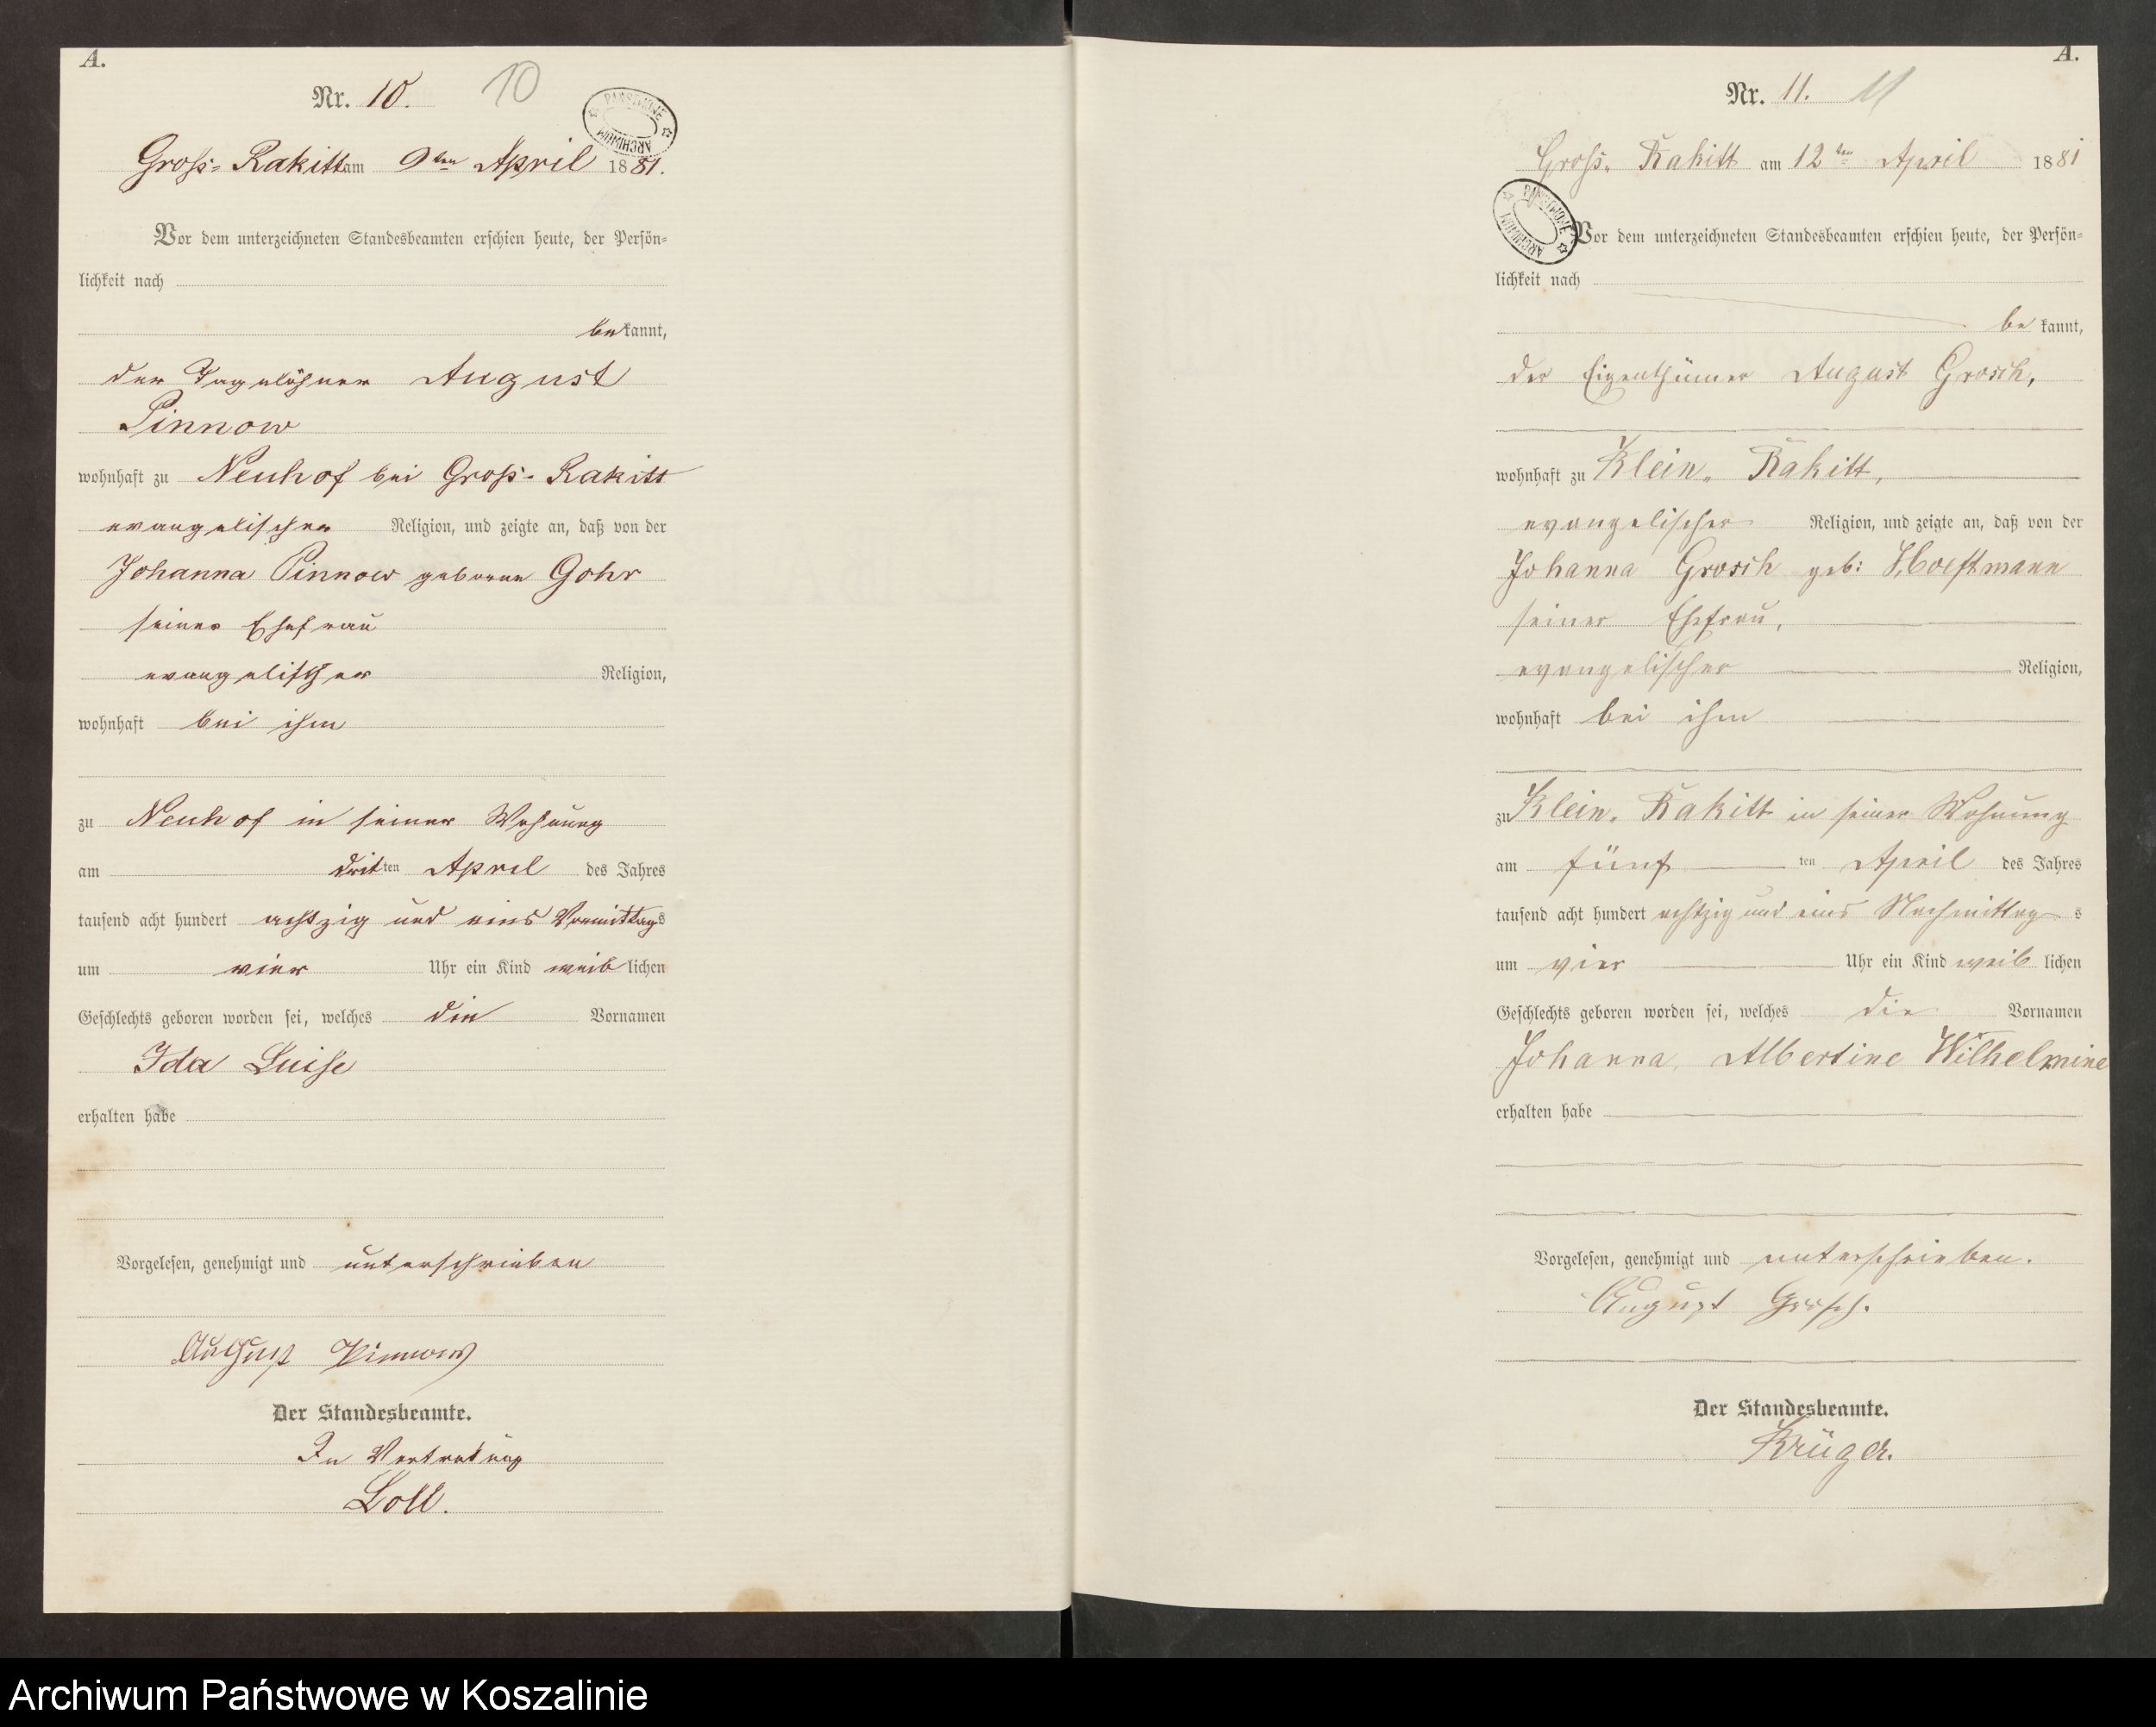 A.
Nr. 10. 10
PAŃSTWOWE ARCHIWUM
Gross-Rakitt am 9ten April 1881.
Vor dem unterzeichneten Standesbeamten erschien heute, der Persön-
lichkeit nach
bekannt,
der Tagelöhner August
Pinnow
wohnhaft zu Neuhof bei Gross-Rakitt
evangelischer Religion, und zeigte an, daß von der
Johanna Pinnow geborene Gohr
seiner Ehefrau
evangelischer Religion,
wohnhaft bei ihm
zu Neuhof in seiner Wohnung
am dritten April des Jahres
tausend acht hundert achtzig und eins Vormittags
um vier Uhr ein Kind weiblichen
Geschlechts geboren worden sei, welches die Vornamen
Ida Luise
erhalten habe
Vorgelesen, genehmigt und unterschrieben
August Pinnow
Der Standesbeamte.
In Vertretung
Loll.
A.
Nr. 11. 11
Gross-Rakitt am 12ten April 1881
PAŃSTWOWE ARCHIWUM
Vor dem unterzeichneten Standesbeamten erschien heute, der Persön-
lichkeit nach
bekannt,
der Eigenthümer August Grosch,
wohnhaft zu Klein-Rakitt,
evangelischer Religion, und zeigte an, daß von der
Johanna Grosch geb:
seiner Ehefrau,
evangelischer Religion,
wohnhaft bei ihm
zu Klein-Rakitt in seiner Wohnung
am fünften April des Jahres
tausend acht hundert achtzig und eins Nachmittags
um vier Uhr ein Kind weiblichen
Geschlechts geboren worden sei, welches die Vornamen
Johanna, Albertine Wilhelmine
erhalten habe
Vorgelesen, genehmigt und unterschrieben.
August Grosch.
Der Standesbeamte.
Krüger.
Archiwum Państwowe w Koszalinie